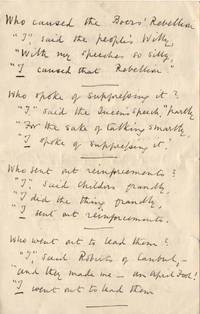 Who caused the Boers' Rebellion
"I", said the people's Willy,
"With my speeches so silly,
"I caused that Rebellion"
Who spoke of suppressing it?
"I", said the Queen's speech, partly
"For the sake of talking smartly
"I spoke of suppressing it.'
Who sent out reinforcements?
"I", said Childers grandly,
"I did the thing grandly,
"I sent out reinforcements.
Who went out to lead them?
"I", said Roberts of Canbul, –
"and they made me – an April Fool!
"I went out to lead them